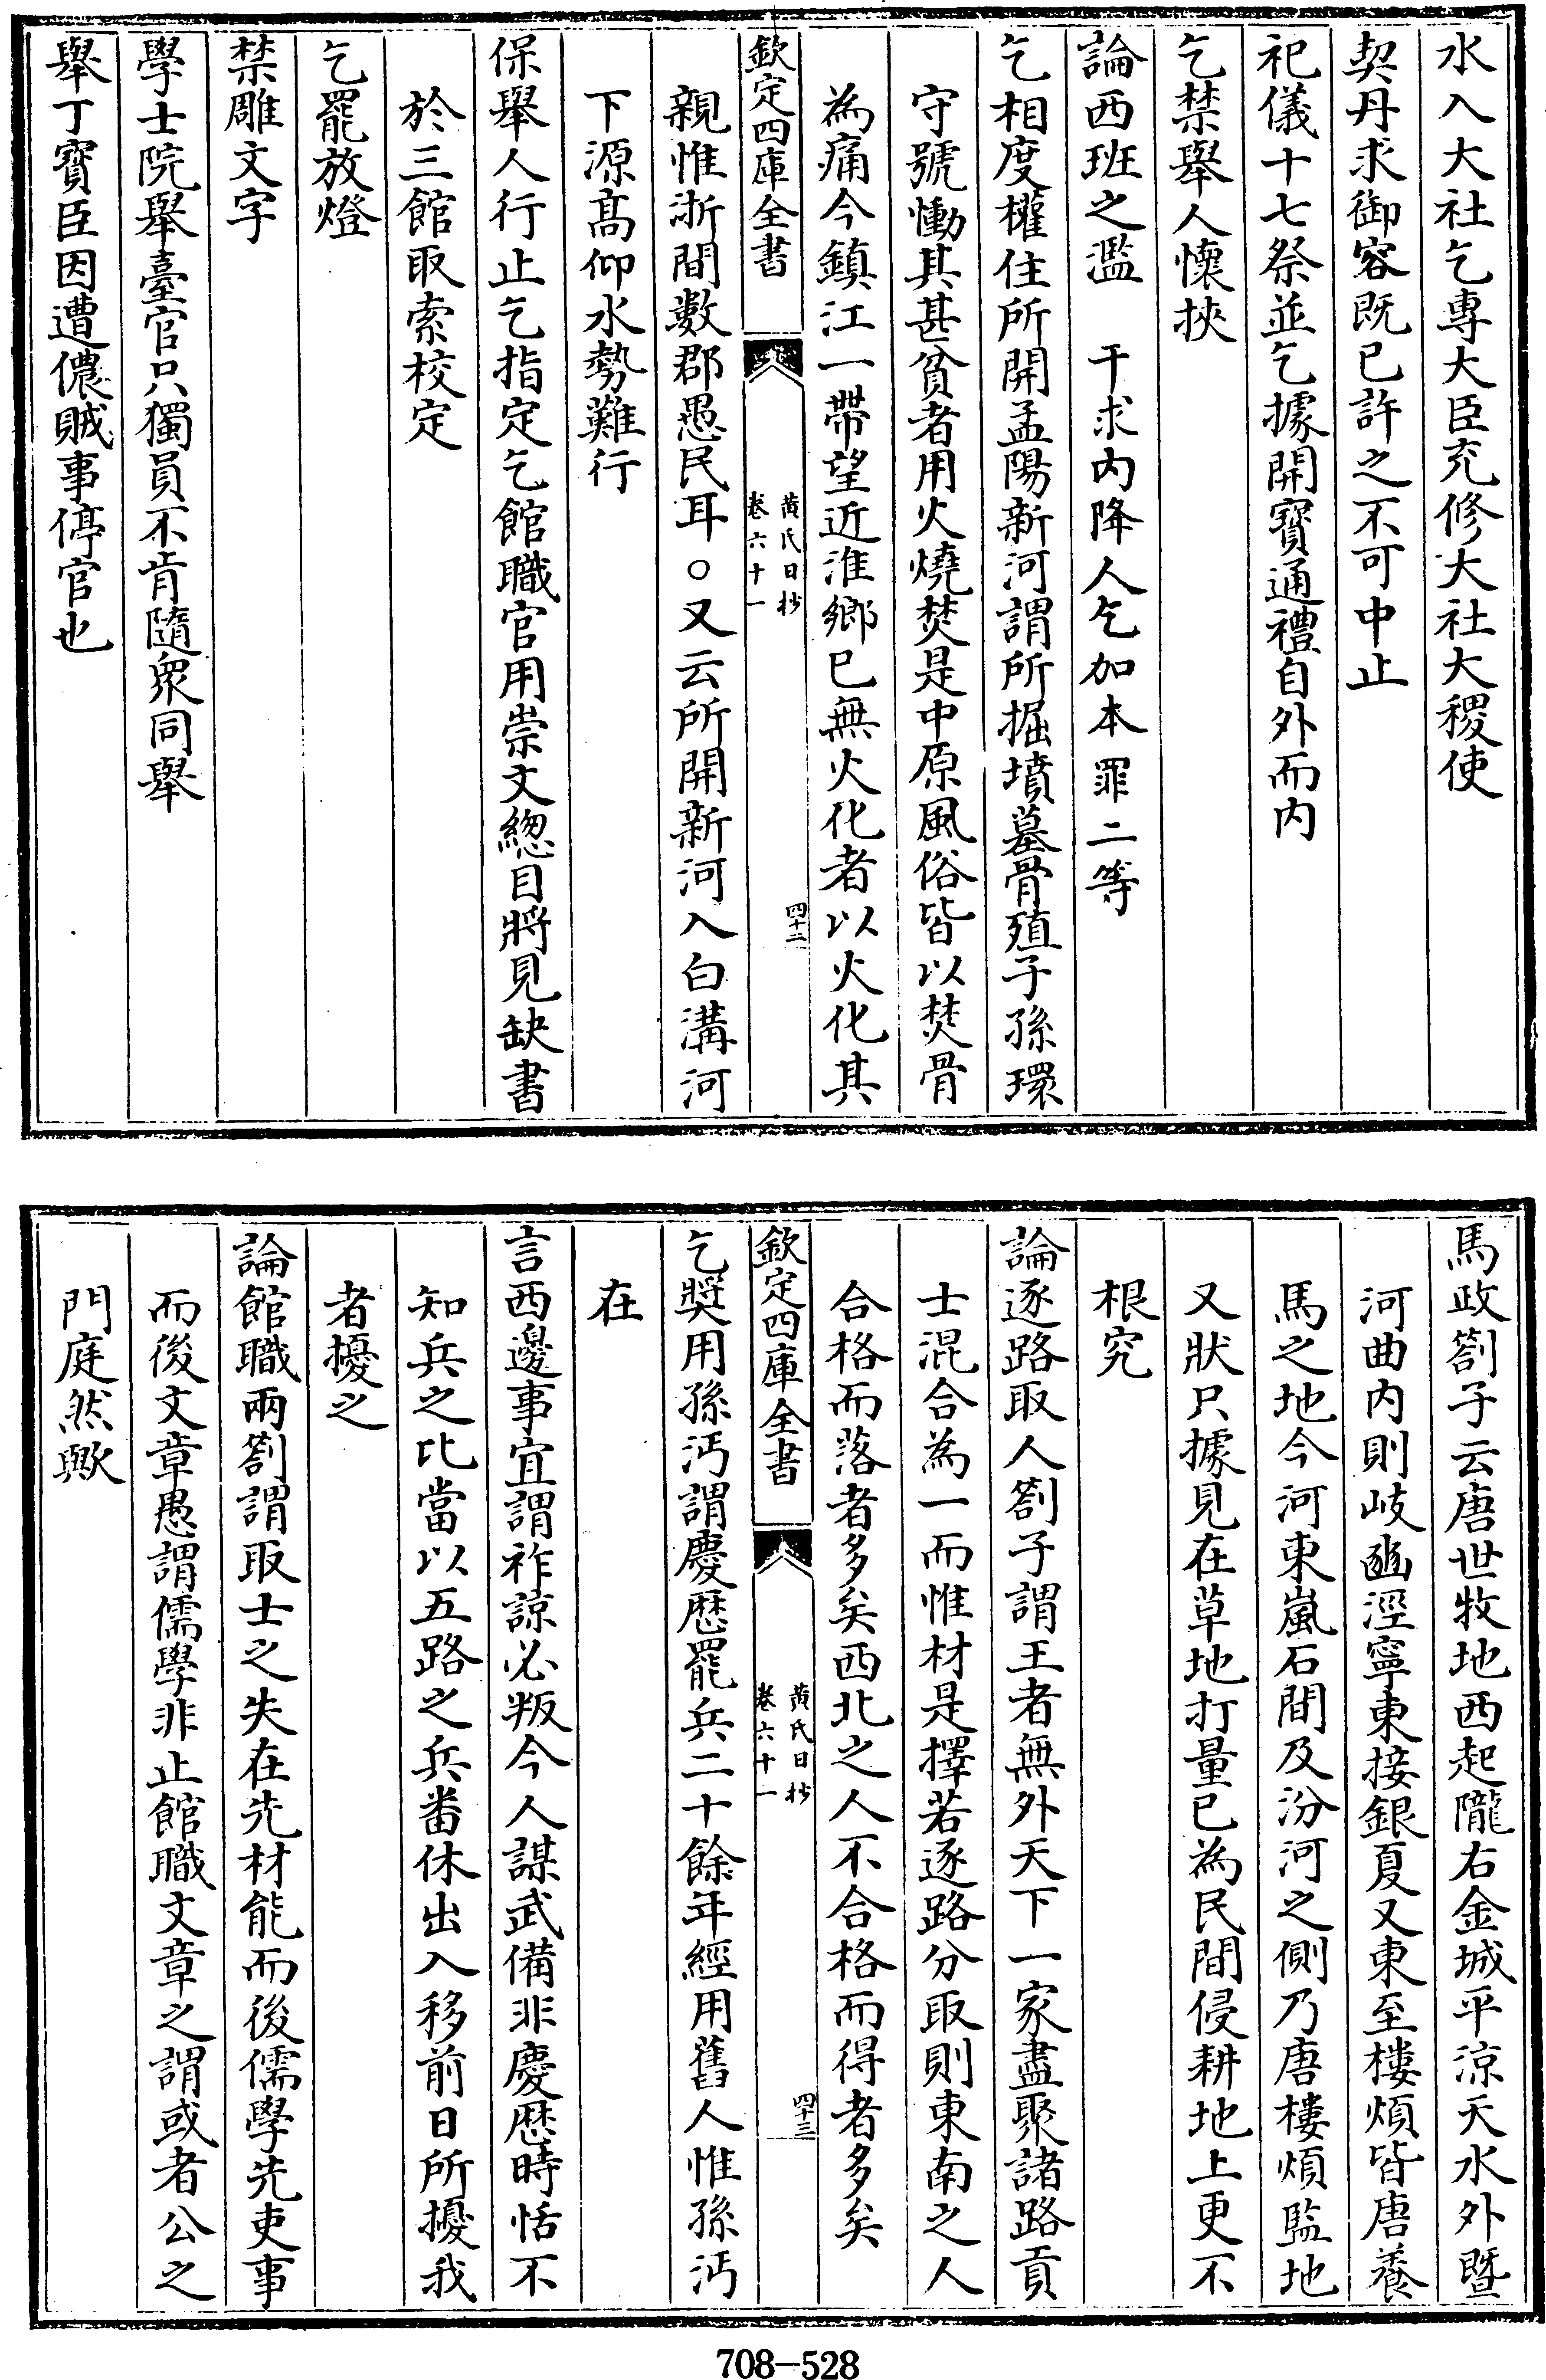 水入大社乞專大臣充修大社大稷使
契丹求御容既已許之不可中止
祀儀十七祭並乞據開寶通禮自外而内
乞禁舉人懷挾
論西班之濫　干求内降人乞加本罪二等
乞相度權住所開孟陽新河謂所掘墳墓骨殖子孫環
守號慟其甚貧者用火燒焚是中原風俗皆以焚骨
為痛今鎮江一帶望近淮鄉已無火化者以火化其
欽定四庫全書
黄氏日抄
卷六十一
四十二
親惟浙間數郡愚民耳○又云所開新河入白溝河
下源髙仰水勢難行
保舉人行止乞指定乞館職官用崇文緫目將見缺書
於三館取索校定
乞罷放燈
禁雕文字
學士院舉臺官只獨員不肯隨衆同舉
舉丁寳臣因遭儂賊事停官也
馬政劄子云唐世牧地西起隴右金城平涼天水外暨
河曲内則岐豳涇寧東接銀夏又東至樓煩皆唐養
馬之地今河東嵐石間及汾河之側乃唐樓煩監地
又狀只據見在草地打量已為民間侵耕地上更不
根究
論逐路取人劄子謂王者無外天下一家盡聚諸路貢
士混合為一而惟材是擇若逐路分取則東南之人
合格而落者多矣西北之人不合格而得者多矣
欽定四庫全書
黄氏日抄
卷六十一
四十三
乞奬用孫沔謂慶厯罷兵二十餘年經用舊人惟孫沔
在
言西邊事宜謂祚諒必叛今人謀武備非慶厯時恬不
知兵之比當以五路之兵番休出入移前日所擾我
者擾之
論館職兩劄謂取士之失在先材能而後儒學先吏事
而後文章愚謂儒學非止館職文章之謂或者公之
門庭然歟
708-528